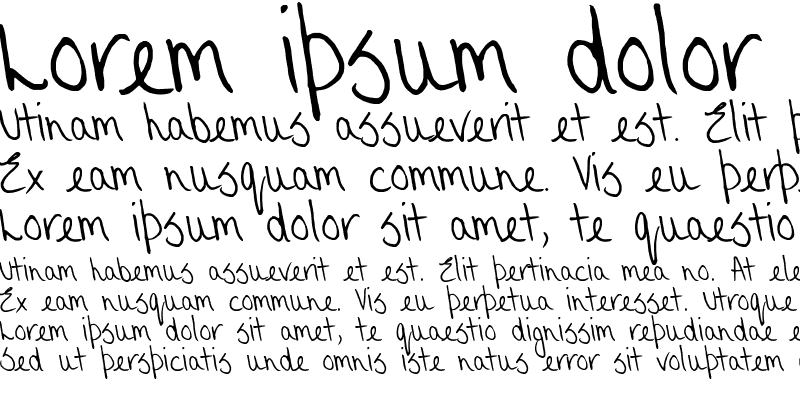 Lorem ipsum dolor
Utinam habemus assueverit et est. Elit
Ex eam nusquam commune. Vis eu
Lorem ipsum dolor sit amet, te quaestio
Utinam habemus assueverit et est. Elit pertinacia mea no. At
Ex eam nusquam commune. Vis eu perpetua interesset. Utroque
Lorem ipsum dolor sit amet, te quaestio dignissim repudiandae
Sed ut perspiciatis unde omnis iste natus error sit voluptatem